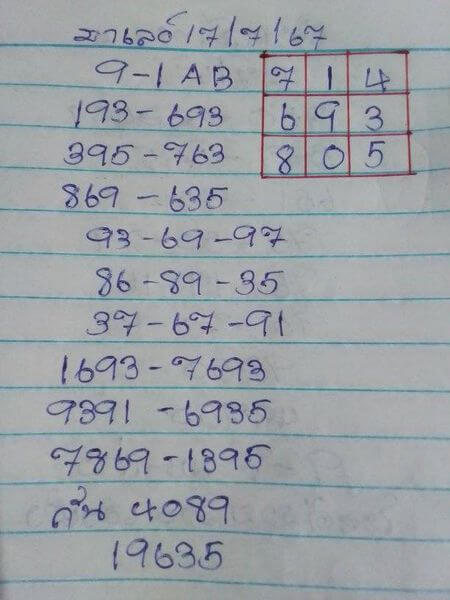 มาเลย์ 17/7/67
9-1 AB
7 1 4
193-693
6 9 3
395-763
8 0 5
869-635
93-69-97
86-89-35
37-67-91
1693-7693
9391-6935
7869-1395
กัน 4089
19635